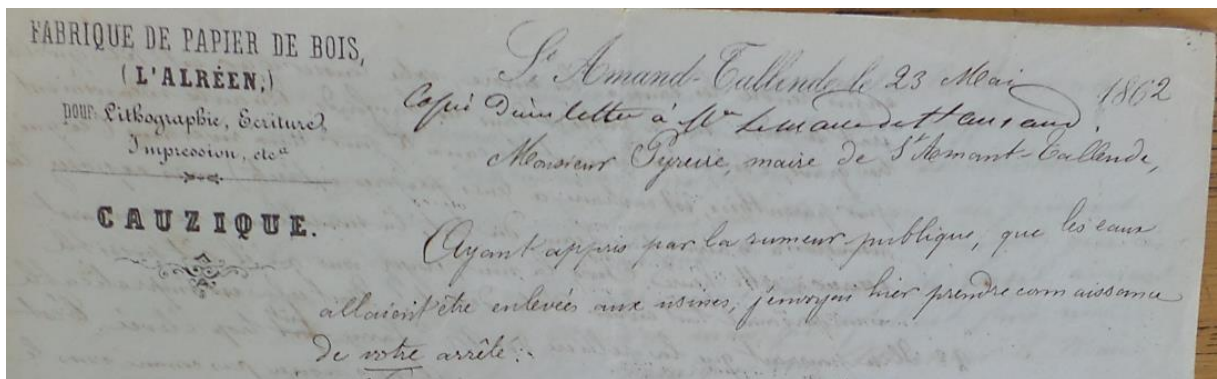 FABRIQUE DE PAPIER DE BOIS,
(L'ALRÉEN,)
pour Lithographie, Ecriture,
Impression, etca
CAUZIQUE.
St Amand-Tallende le 23 Mai 1862
Copie d'une lettre à Mr le maire de St Amand.
Monsieur Pyreire, maire de St Amant-Tallende,
Ayant appris par la rumeur publique, que les eaux
allaient être enlevées aux usines, j'envoyai hier prendre connaissance
de votre arrêté.